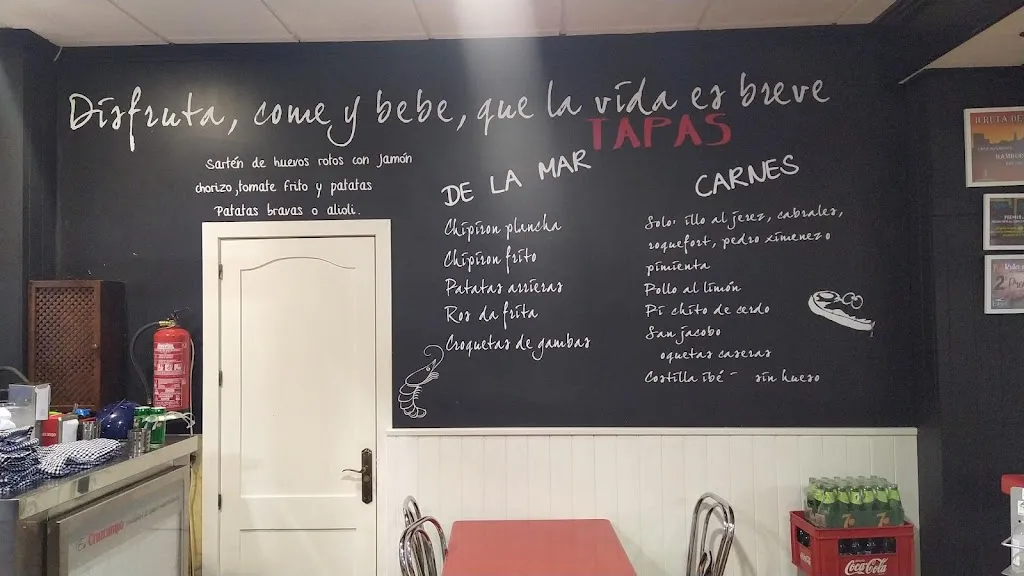 Disfruta, come y bebe, que la vida es breve
TAPAS
Sartén de huevos rotos con jamón
chorizo, tomate frito y patatas
Patatas bravas o alioli.
DE LA MAR
Chipiron plancha
Chipiron frito
Patatas arrieras
Ros da frita
Croquetas de gambas
CARNES
Solo illo al jerez, cabrales,
roquefort, pedro ximenez o
pimienta
Pollo al limón
Pi chito de cerdo
San jacobo
oquetas caseras
Costilla ibé sin hueso
Cruzcampo
Coca-Cola
7
2